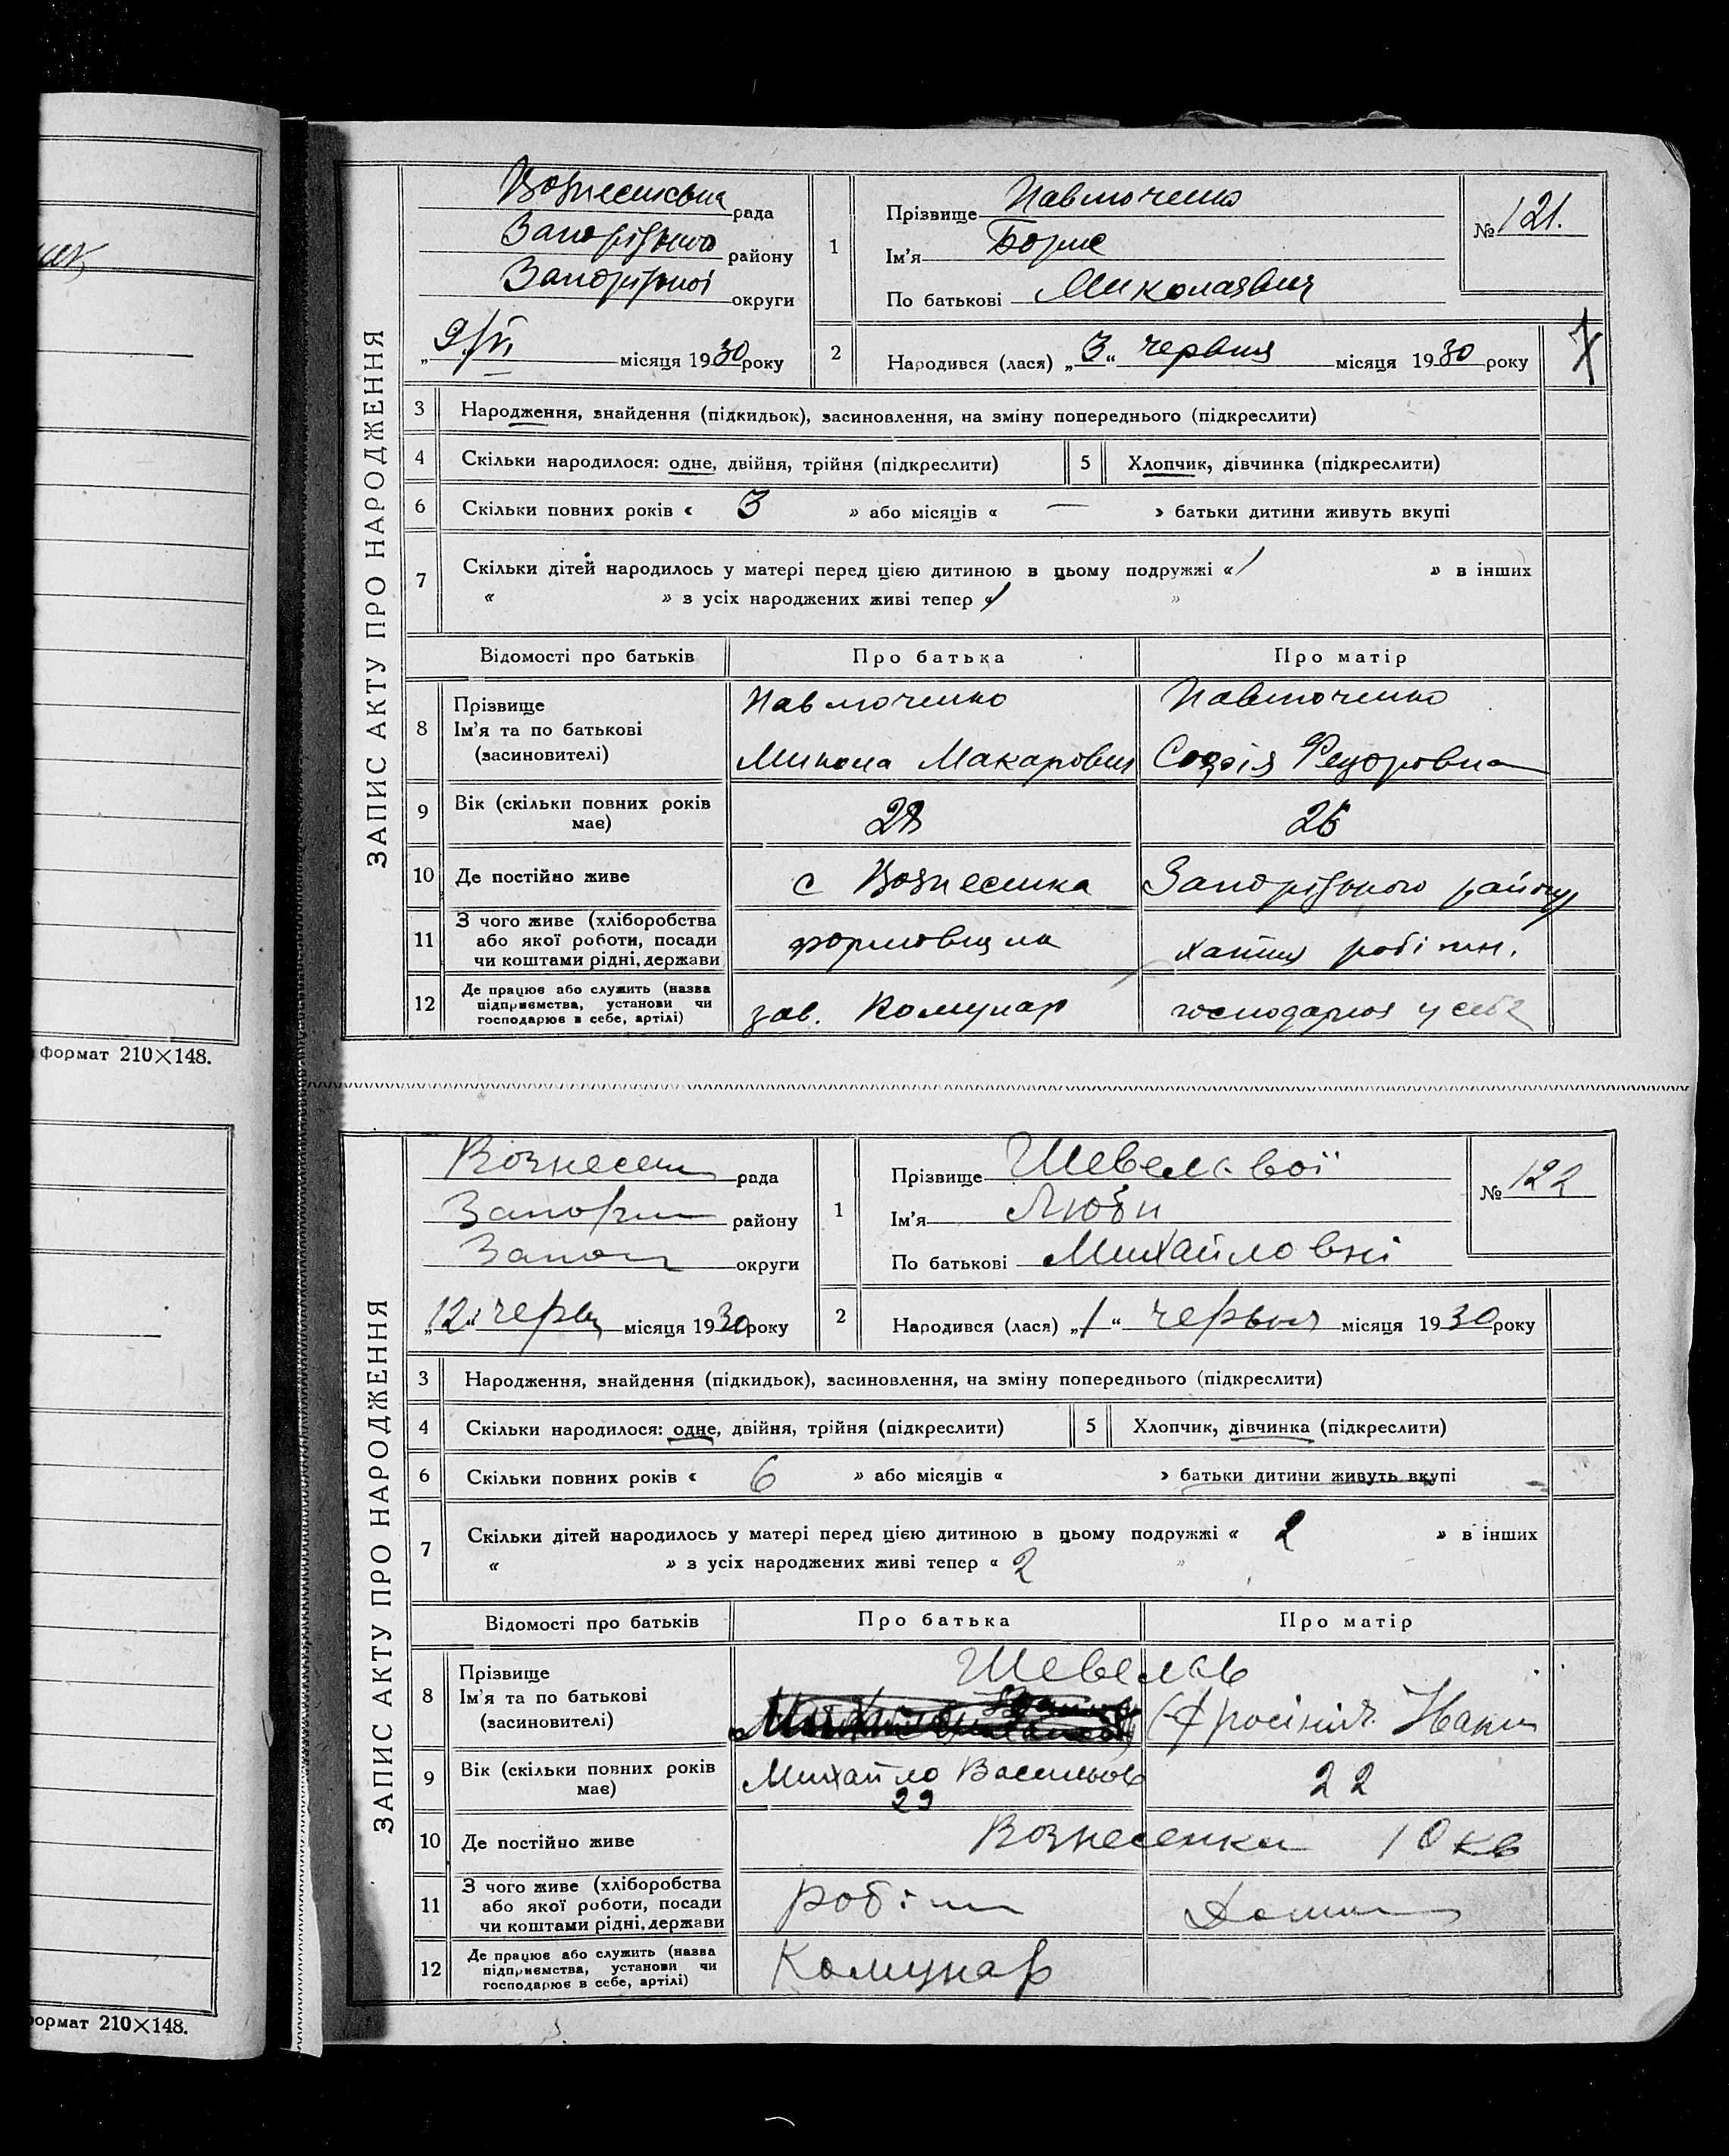 формат 210×148.
формат 210×148.
ЗАПИС АКТУ ПРО НАРОДЖЕННЯ
Вознесенська рада
Запорізького району
Запорізької округи
„9/VI місяця 1930 року
1
Прізвище Павлюченко
Ім'я Борис
По батькові Миколаєвич
№ 121.
2
Народився (лася) „3“ червня місяця 1930 року
3 Народження, знайдення (підкидьок), засиновлення, на зміну попереднього (підкреслити)
4 Скільки народилося: одне, двійня, трійня (підкреслити) 5 Хлопчик, дівчинка (підкреслити)
6 Скільки повних років « 3 » або місяців « — » батьки дитини живуть вкупі
7 Скільки дітей народилось у матері перед цією дитиною в цьому подружжі « 1 » в інших
« » з усіх народжених живі тепер « 1 »
Відомості про батьків Про батька Про матір
8 Прізвище Ім'я та по батькові (засиновителі)
Павлюченко Павлюченко
Микола Макарович Софія Федоровна
9 Вік (скільки повних років має) 28 26
10 Де постійно живе с Вознесенка Запорізького району
11 З чого живе (хліборобства або якої роботи, посади чи коштами рідні, держави
формовщик хатня робітн.
12 Де працює або служить (назва підприємства, установи чи господарює в себе, артілі)
зав. Комунар господарює у себе
ЗАПИС АКТУ ПРО НАРОДЖЕННЯ
Вознесен рада
Запоріз району
Запор округи
„12“ червня місяця 1930 року
1
Прізвище Шевелєвої
Ім'я Люби
По батькові Михайловні
№ 122
2
Народився (лася) „1“ червня місяця 1930 року
3 Народження, знайдення (підкидьок), засиновлення, на зміну попереднього (підкреслити)
4 Скільки народилося: одне, двійня, трійня (підкреслити) 5 Хлопчик, дівчинка (підкреслити)
6 Скільки повних років « 6 » або місяців « » батьки дитини живуть вкупі
7 Скільки дітей народилось у матері перед цією дитиною в цьому подружжі « 2 » в інших
« » з усіх народжених живі тепер « 2 »
Відомості про батьків Про батька Про матір
8 Прізвище Ім'я та по батькові (засиновителі)
Шевелєв
9 Вік (скільки повних років має)
Михайло Васильов
29 22
10 Де постійно живе Вознесенка 10 кв
11 З чого живе (хліборобства або якої роботи, посади чи коштами рідні, держави
робітн
12 Де працює або служить (назва підприємства, установи чи господарює в себе, артілі)
Комунар